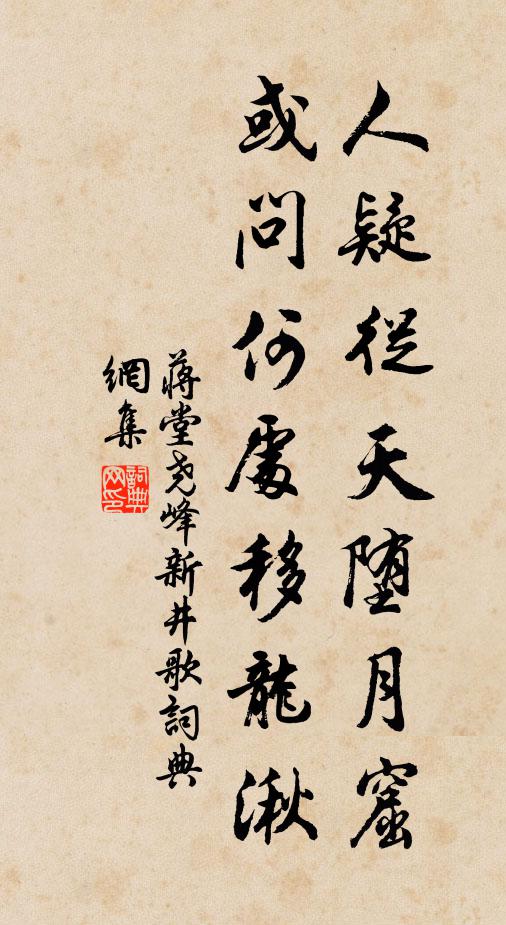 人疑從天墮月窟
或問何處移龍湫
蔣堂堯峰新井歌詞典
網集
詞典网印